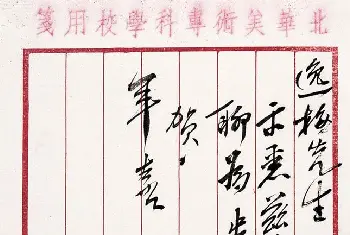 北華美術專科學校用箋
逸梅先生
示悉茲
聊為生
賀
年喜